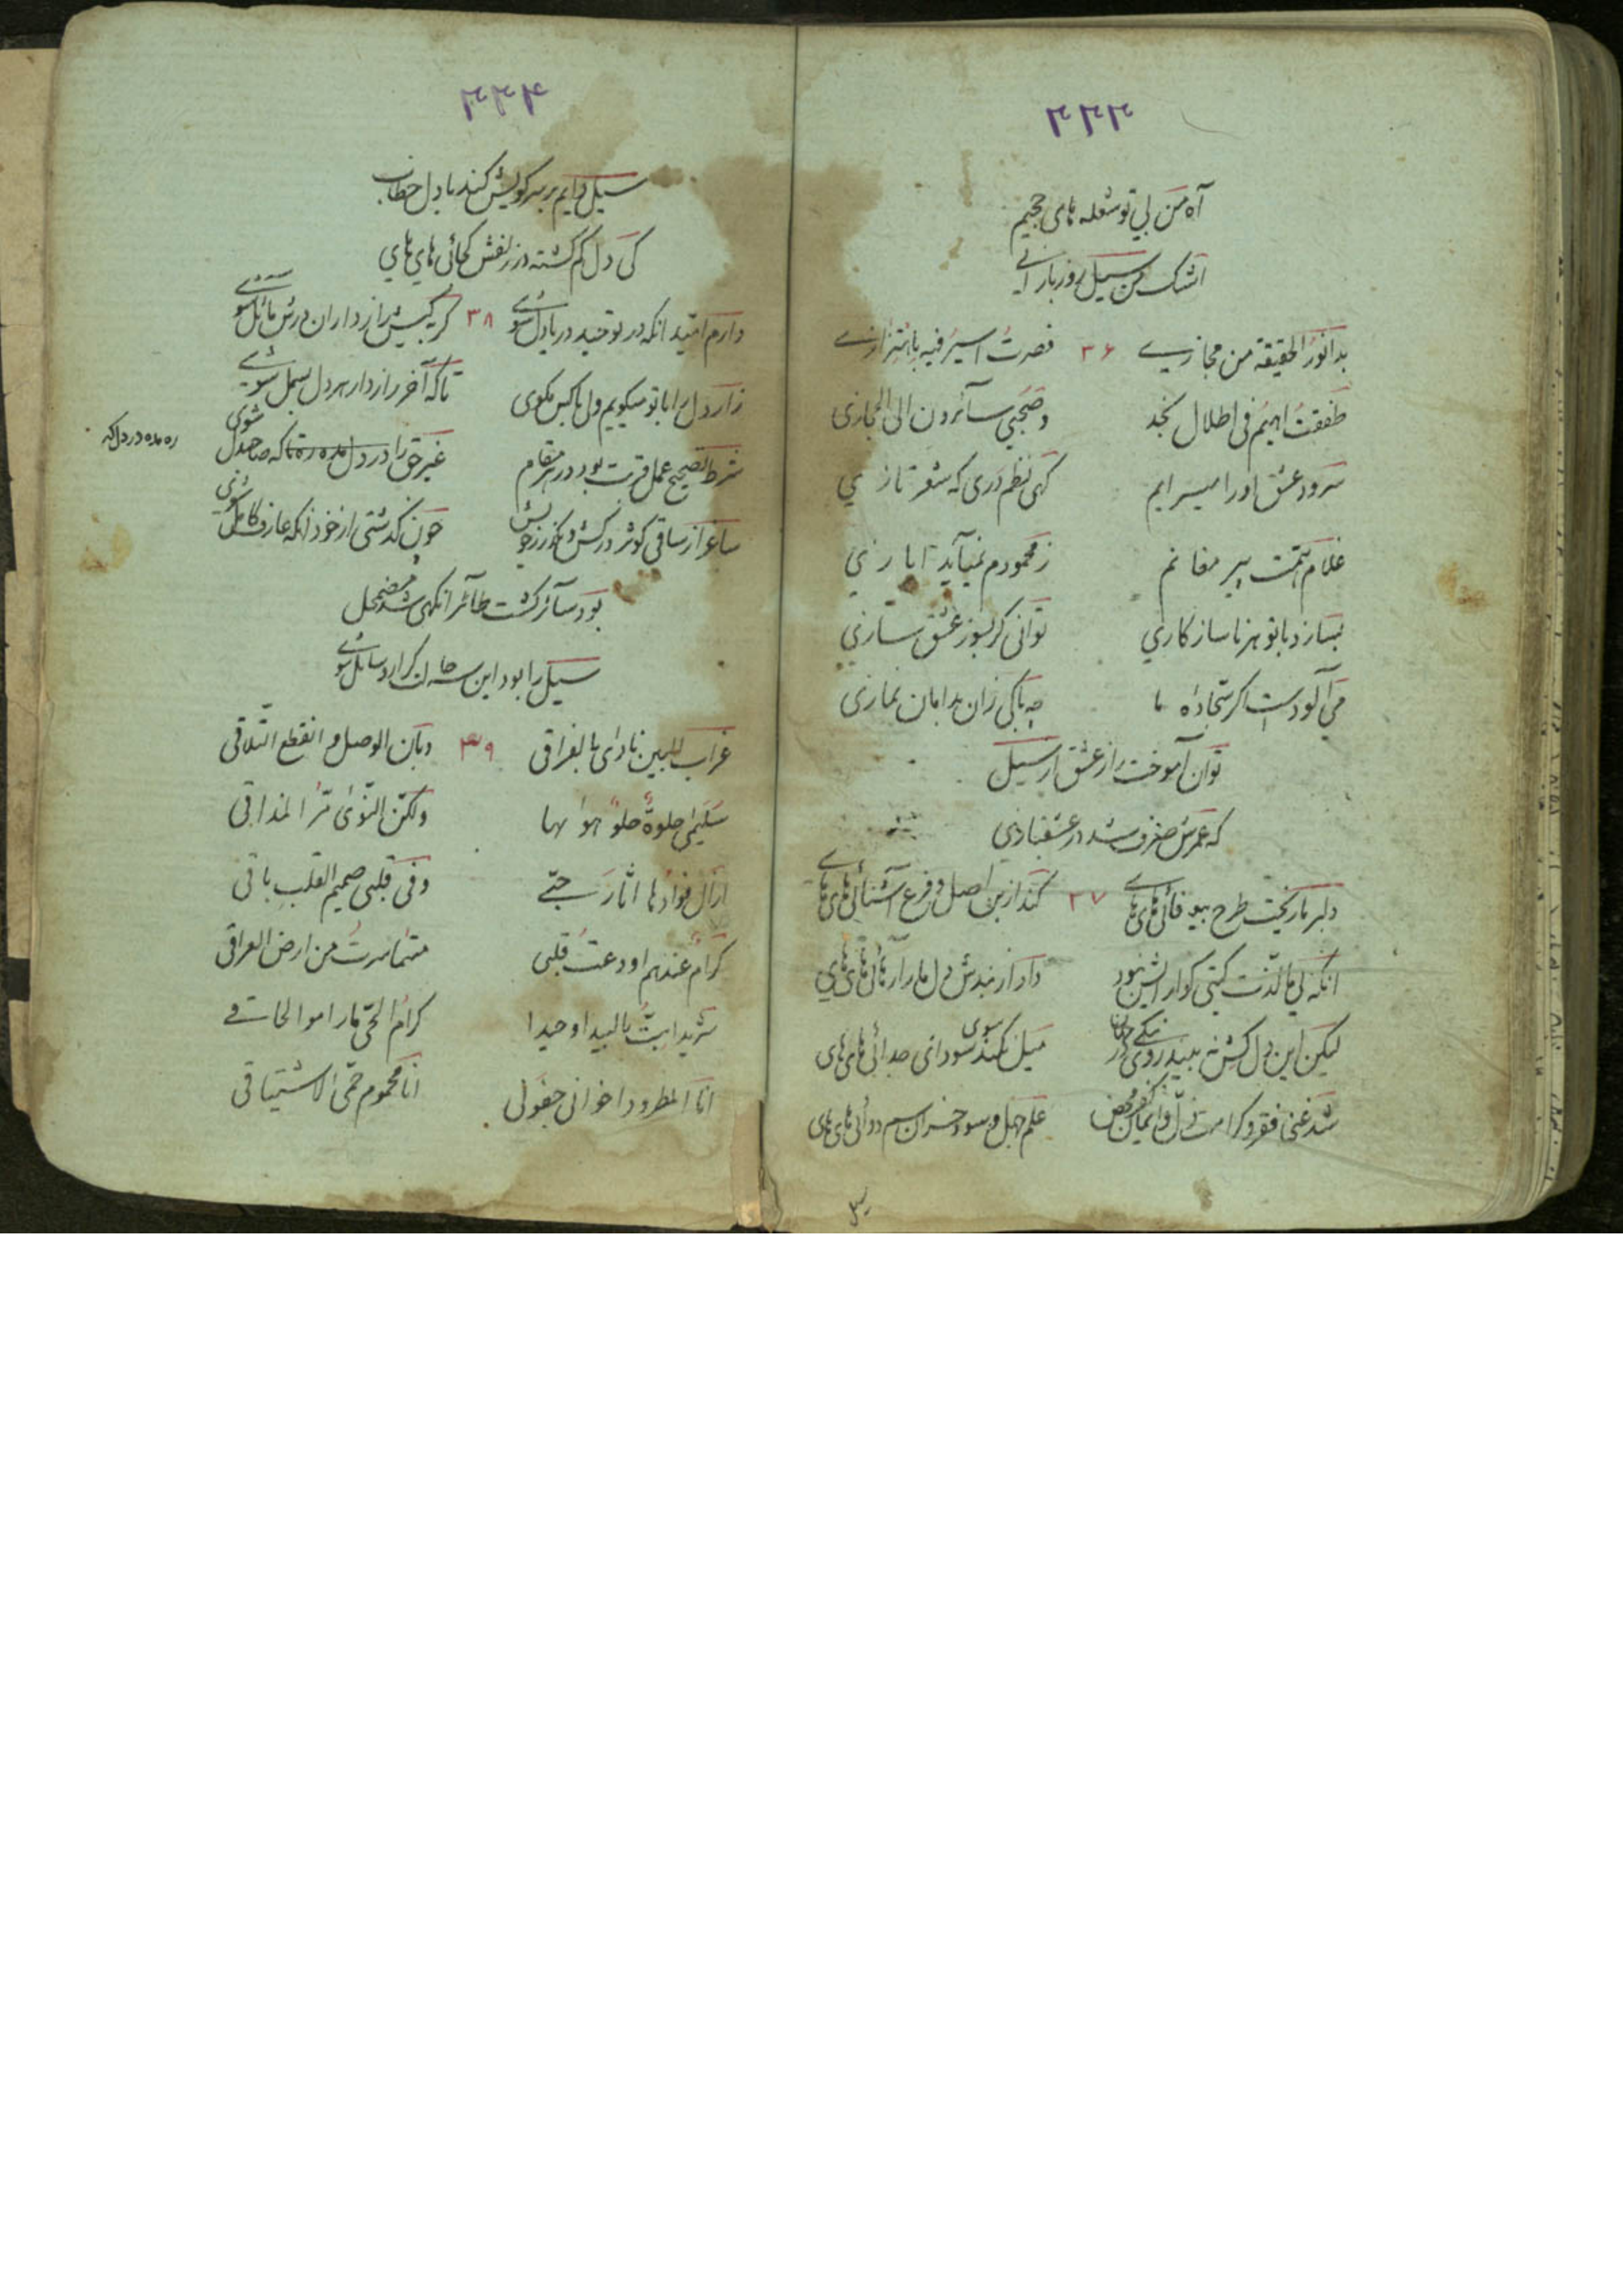 ۲۲۳
آه من بی تو شعله های جحیم
اشک من سیل روز بارانی
بدا نور الحقیقة من مجازی ۳۶ فصرت اسیر فیه باهتزازی
طفقت اهیم فی اطلال نجد وصحبی سائرون الی الحجازی
سرود عشق او را میسرایم کهی نظم دری که شعر تازی
غلام همت پیر مغانم ز محمودم نمیآید ایازی
بسازد با تو هر ناسازکاری توانی کر بسوز عشق سازی
می آلودست اکر سجاده ما چه باکی زان بدامان نمازی
توان آموخت راز عشق از سیل
که عمرش صرف شد در عشقبازی
دلبر ما ریخت طرح بیوفائی های های ۳۷ کند از بن اصل و فرع آشنائی های های
انکه بی ما لذت کیتی کوارایش نبود داد از بندش دل ما را رهائی های های
لیکن این دل کش نه بیند روی نیکی جز میل کند سوی سودای جدائی های های
شد غنی فقر و کرامت ذل و ایمان کفر محض علم جهل و سود خسران سم دوائی های های
۲۲۴
سیل دایم بر سر کویش کند با دل خطاب
کی دل کم کشته در زلفش کجائی های های
دارم امید انکه در توحید دریادل شوی ۳۸ کر بکیش رازداران درش مائل شوی
راز دل را با تو میکویم ولی با کس مکوی تا که آخر رازدار هر دل بسمل شوی
شرط تصحیح عمل قربت بود در هر مقام غیر حق را در دل مده ره تا که صاحبدل شوی
ره مده در دل که
ساغر از ساقی کوثر درکش و بکذر ز خویش چون کذشتی از خود انکه عارف کامل شوی
بود سائر کشت طائر انکهی شد مضمحل
سیل را بود این سه حالت
غراب البین نادی بالفراقی ۳۹ وبان الوصل و انقطع التلاقی
سلیمی حلوة حلو هواها ولکن النوی مر المذاقی
ازال فوادها اثار حبی وفی قلبی صمیم القلب باقی
کرام عندهم اودعت قلبی متی ما سرت من ارض العراقی
شریدا بت بالبیدا وحیدا کرام الحی ما راموا لحاقی
انا المطرود اخوانی جفولی انا محموم حمی الاشتیاقی